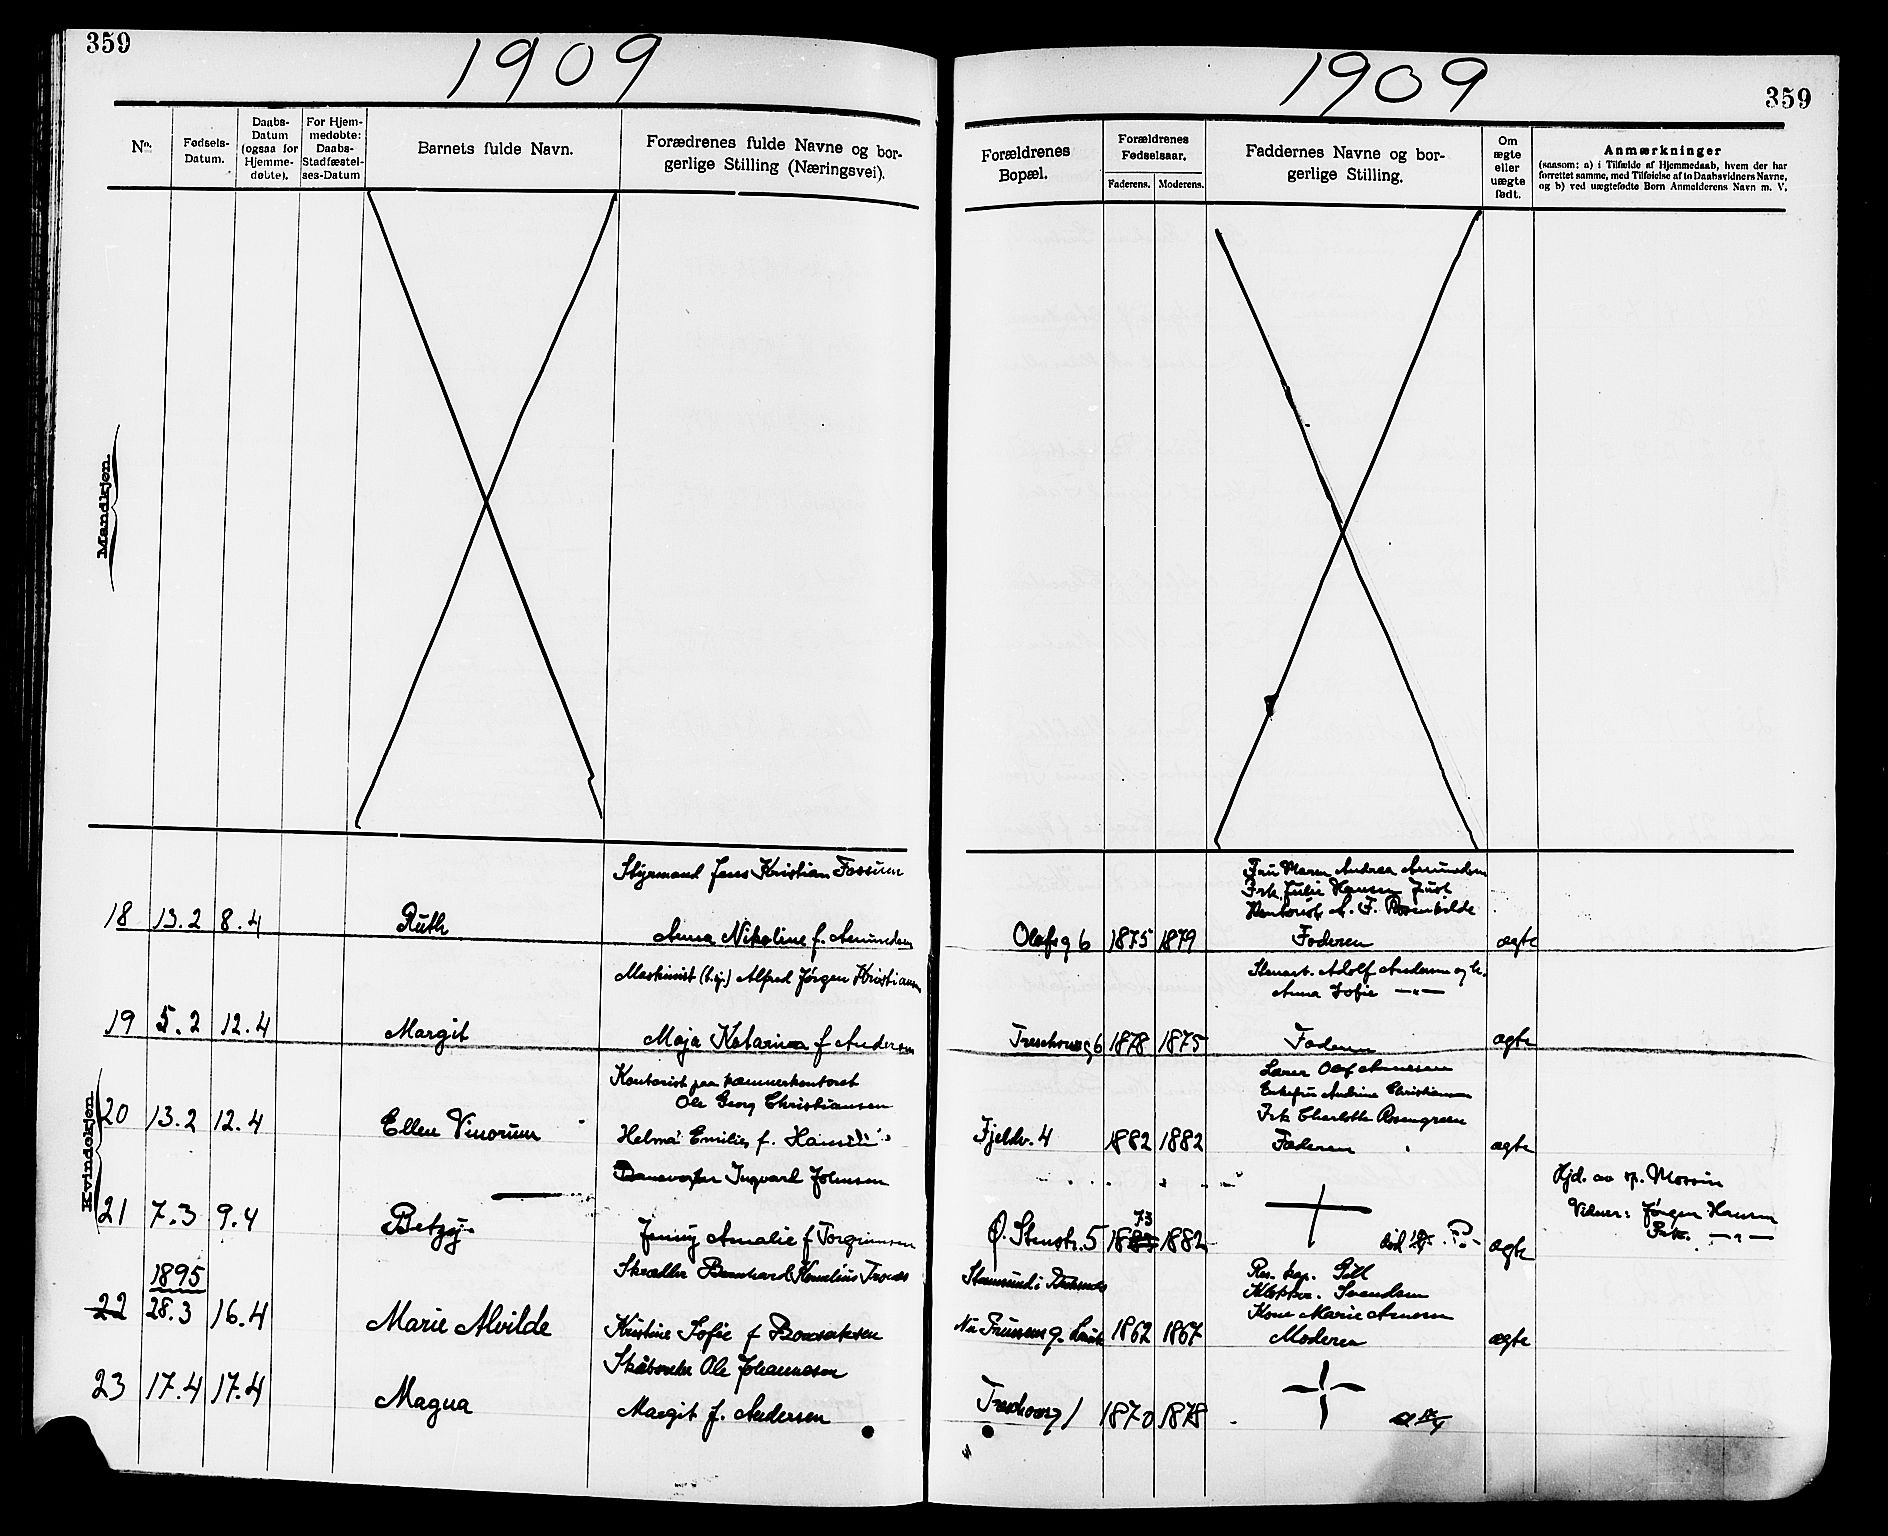 359
1909
No.
Fødsels-
Datum.
Daabs-
Datum
(ogsaa for
Hjemme-
døbte).
For Hjem-
medøbte:
Daabs-
Stadfæstel-
ses-Datum
Barnets fulde Navn.
Forædrenes fulde Navne og bor-
gerlige Stilling (Næringsvei).
Mandkjøn.
Styrmand Jens Kristian Fossum
18 13.2 8.4 Ruth
Anna Nikoline f. Amundsen
Maskinist Alfred Jørgen Kristiansen
19 5.2 12.4 Margit
Maja Katarina f Andersen
Kontorist paa kæmnerkontoret
Ole Georg Christiansen
20 13.2 12.4 Ellen Vinorum
Helma Emilie f. Hansen
Kvindekjøn
Ingvart Johnsen
21 7.3 9.4 Betzy
Jenny Amalie f Torgrimsen
1895
Skrædder Bernhard Kornelius
22 28.3 16.4 Marie Alvilde
Kristine Sofie f
Ole Johannesen
23 17.4 17.4 Magna
Margit f. Andersen
1909
359
Forældrenes
Bopæl.
Forældrenes
Fødselsaar.
Faderens. Moderens.
Faddernes Navne og bor-
gerlige Stilling.
Om
ægte
eller
uægte
født.
Anmærkninger
(saasom: a) i Tilfælde af Hjemmedaab, hvem der har
forrettet samme, med Tilføielse af to Daabsvidners Navne,
og b) ved uægtefødte Børn Anmelderens Navn m. V.
Fru Maren Andrea Amundsen
Frk. Julie Hansen
A. F. Rosenkilde
Olafsg 6 1875 1879 Faderen ægte
Adolf Andersen og h.
Anna Sofie —"—
Treschowsg 6 1878 1875 Faderen ægte
Lærer Olaf Arnesen
Enkefru Andrine Christiansen
Frk Charlotte Rosengreen
Fjeldv. 4 1882 1882 Faderen ægte
Hjd. av sp. Morsin
Vidner: Jørgen Hansen
Petr. —"—
73
Ø. Stenstr. 5 1882 1882 død ægte
Res. kap. Gill
Svendsen
Kone Marie Arnesen
1862 1867 Moderen ægte
Treschowsg 1 1870 1878